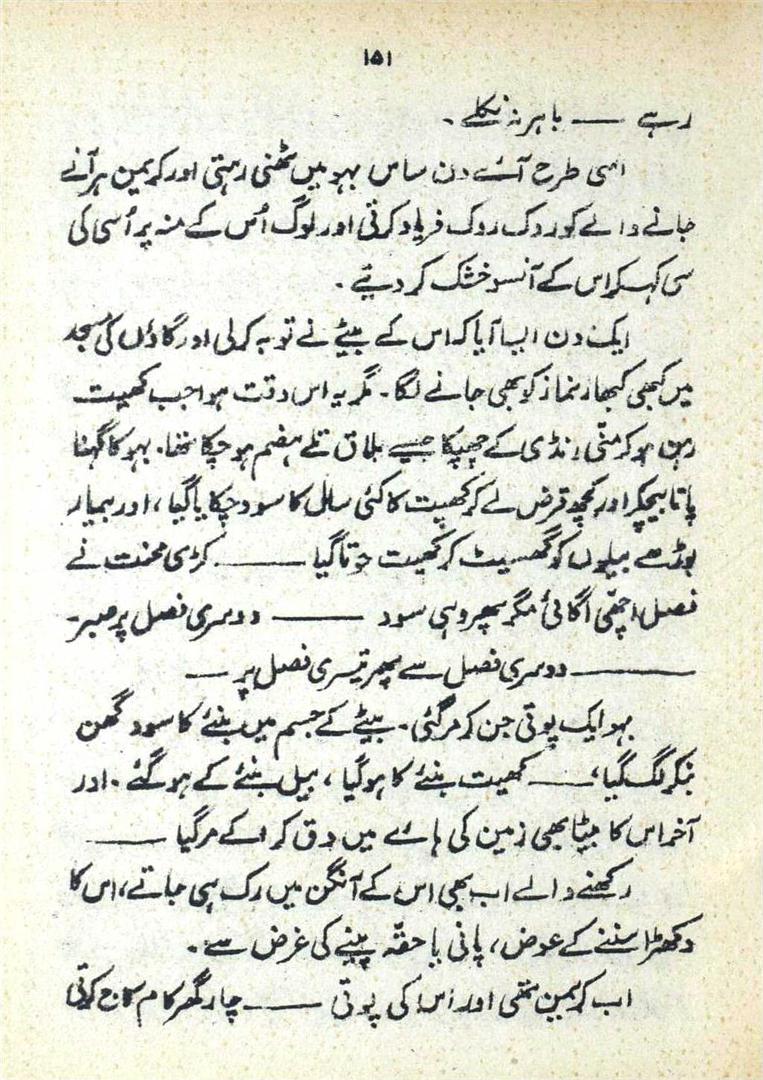 ۱۵۱
رہے —— باہر نہ نکلے۔
اسی طرح آئے دن ساس بہو میں ٹھنی رہتی اور کریمن ہر آنے
جانے والے کو روک روک فریاد کرتی اور لوگ اُس کے منہ پر اُسی کی
سی کہہ کر اس کے آنسو خشک کر دیتے۔
ایک دن ایسا آیا کہ اس کے بیٹے نے توبہ کر لی اور گاؤں کی مسجد
میں کبھی کبھار نماز کو بھی جانے لگا۔ مگر یہ اس وقت ہوا جب کھیت
رہن ہو کر منّی رنڈی کے چھپکا جیسے بلاق تلے ہضم ہو چکا تھا۔ بہو کا گہنا
پاتا بیچکر اور کچھ قرض لے کر کھیت کا کئی سال کا سود چکایا گیا، اور بیمار
بوڑھے بیلوں کو گھسیٹ کر کھیت جوتا گیا —— کڑی محنت نے
فصل اچھّی اگائی مگر پھر وہی سود —— دوسری فصل پر صبر۔
—— دوسری فصل سے پھر تیسری فصل پر ——
بہو ایک پوتی جن کر مر گئی۔ بیٹے کے جسم میں بنئے کا سود گھن
بنکر لگ گیا، —— کھیت بنئے کا ہو گیا، بیل بنئے کے ہو گئے۔ اور
آخر اس کا بیٹا بھی زمین کی ہائے میں دق کرا کے مر گیا ——
رکھنے والے اب بھی اس کے آنگن میں رک ہی جاتے، اس کا
دکھڑا سننے کے عوض، پانی یا حقّہ پینے کی غرض سے۔
اب کریمن تھی اور اُس کی پوتی —— چار گھر کام کاج کرتی